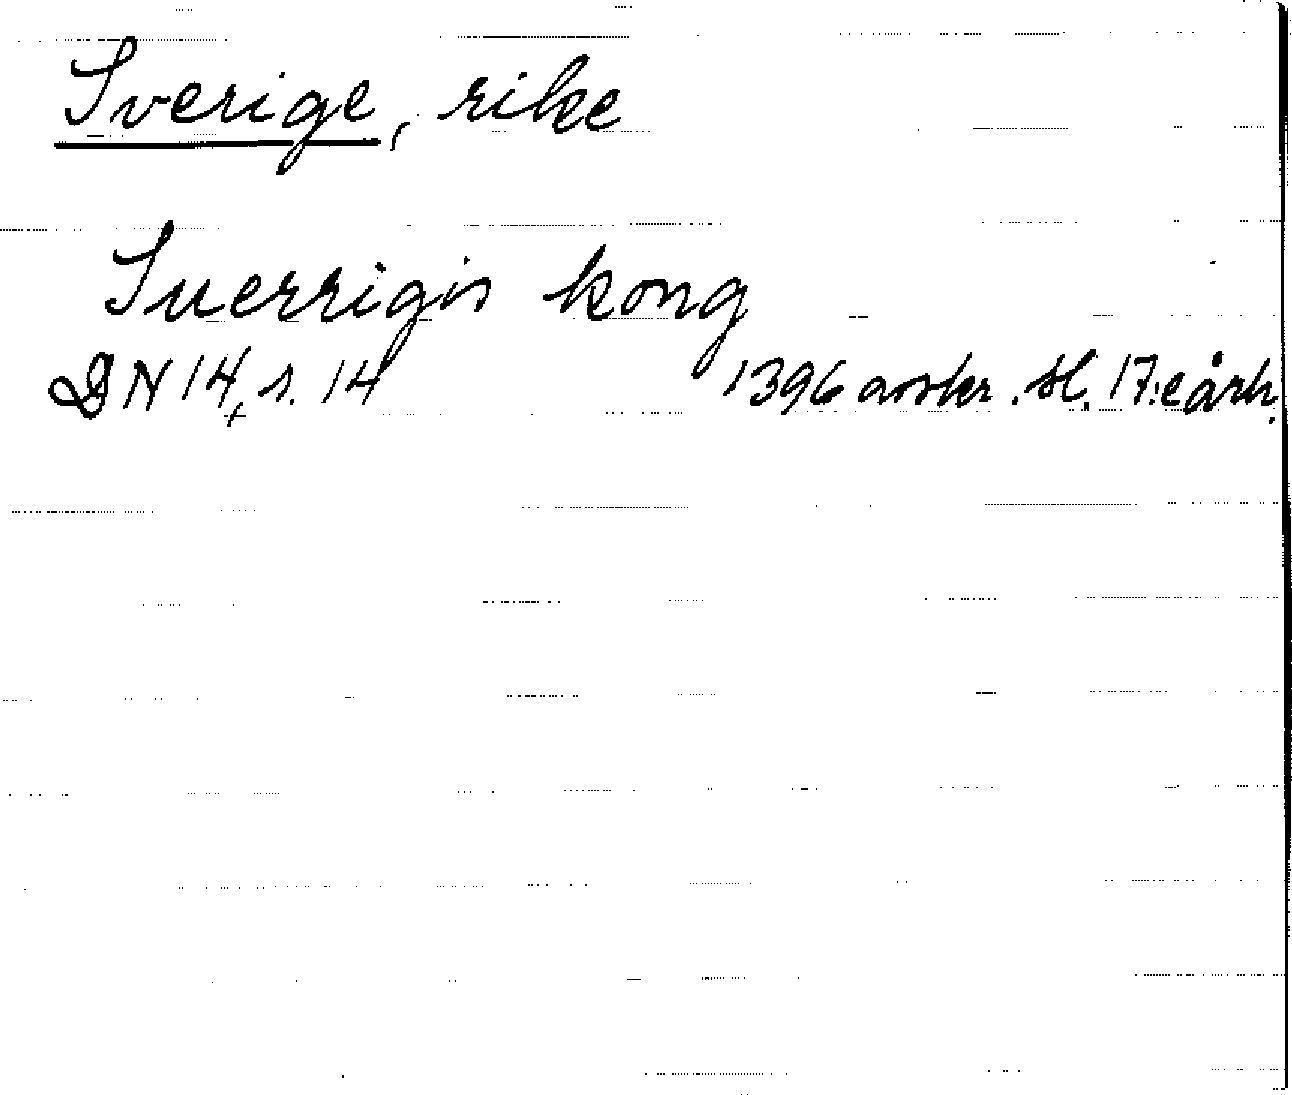 Sverige, rike
Suerrigis kong
DN 14, s. 14 1396 avskr. sl. 17:e årh.